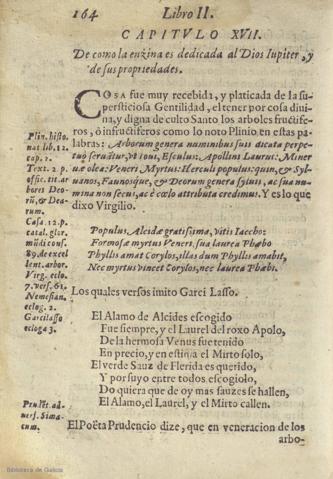 164 Libro II.
CAPITVLO XVII.
De como la enzina es dedicada al Dios Iupiter, y
de sus propriedades.
COSA fue muy recebida, y platicada de la su-
persticiosa Gentilidad, el tener por cosa divi-
na, y digna de culto Santo los arboles fructife-
ros, ò infructiferos como lo noto Plinio en estas pa-
labras: Arborum genera numinibus suis dicata perpe-
tuo servātur, vt Ioui, Esculus: Apollini Laurus: Miner
uæ olea: Veneri Myrtus: Herculi populus: quin, & Syl-
uanos, Faunosque, & Deorum genera syluis, ac sua nu-
mina non secus, ac è cœlo attributa credimus. Y es lo que
dixo Virgilio.
Plin. histo.
nat lib. 12.
cap. 1.
Text. 2. p.
offic. tit. ar
bores Deo-
rū, & Dea-
rum.
Casa. 12. p.
catal. glor.
mūdi cons.
89. de excel
lent. arbor.
Virg. eclo.
7. vers. 61.
Nemesian.
eclog. 2.
Garcilasso
ecloga 3.
Populus Alcidæ gratissima, vitis Iaccho:
Formosæ myrtus Veneri, sua laurea Phœbo
Phyllis amat Corylos, illas dum Phyllis amabit,
Nec myrtus vincet Corylos, nec laurea Phœbi.
Los quales versos imito Garci Lasso.
El Alamo de Alcides escogido
Fue siempre, y el Laurel del roxo Apolo,
De la hermosa Venus fue tenido
En precio, y en estima el Mirto solo,
El verde Sauz de Flerida es querido,
Y por suyo entre todos escogiolo,
Do quiera que de oy mas sauzes se hallen,
El Alamo, el Laurel, y el Mirto callen.
Prudēt. ad-
vers. Sima-
cum.
El Poëta Prudencio dize, que en veneracion de los
arbo-
Biblioteca de Galicia